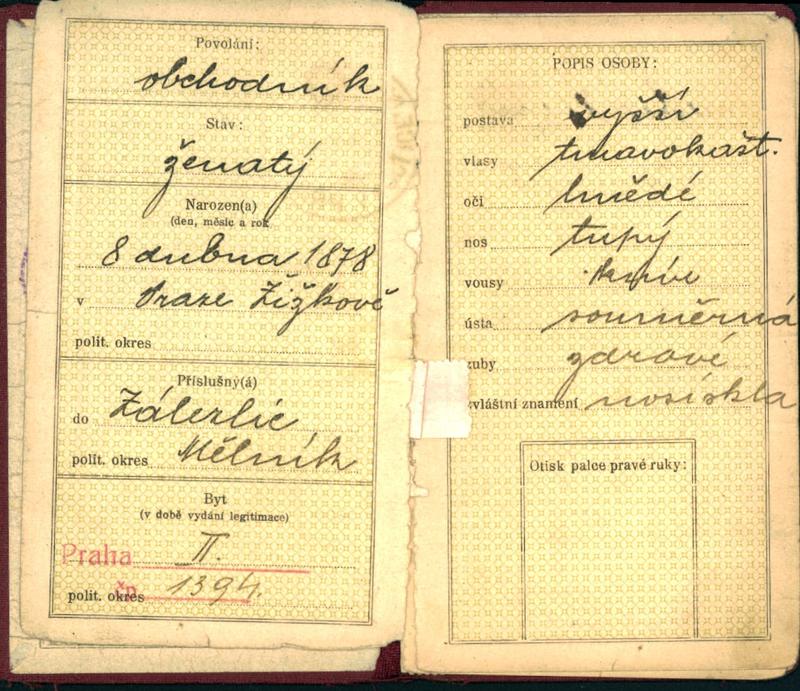 Povolání:
obchodník
Stav:
ženatý
Narozen(a)
(den, měsíc a rok
8 dubna 1878
v Praze Žižkově
polit. okres
Příslušný(á)
do Zálezlic
polit. okres Mělník
Byt
(v době vydání legitimace)
Praha II.
čp.
polit. okres 1394.
POPIS OSOBY:
postava vyšší
vlasy tmavokašt.
oči hnědé
nos tupý
vousy
ústa souměrná
zuby zdravé
zvláštní znamení nosí skla
Otisk palce pravé ruky: